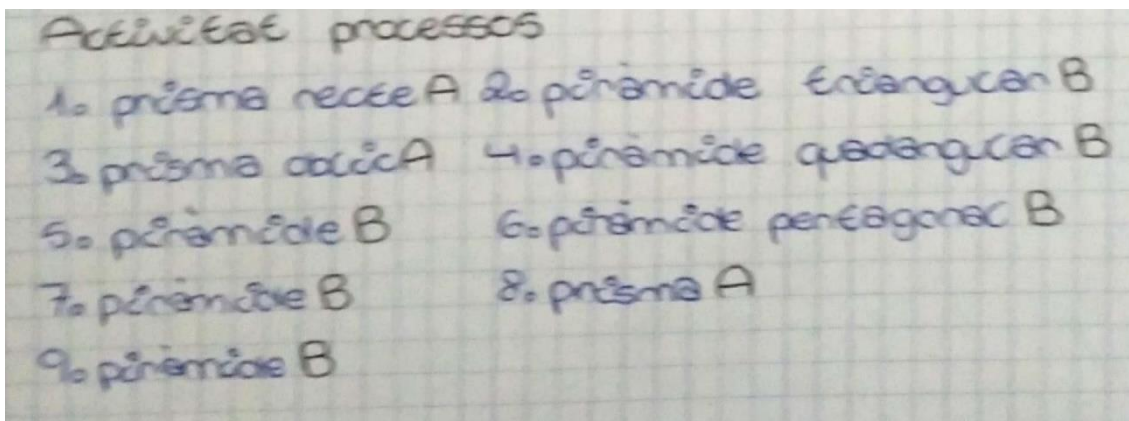 Activitat processos
1. prisma recte A 2. piràmide triangular B
3. prisma oblic A 4. piràmide quadangular B
5. piràmide B 6. piràmide pentagonal B
7. piràmide B 8. prisma A
9. piràmide B